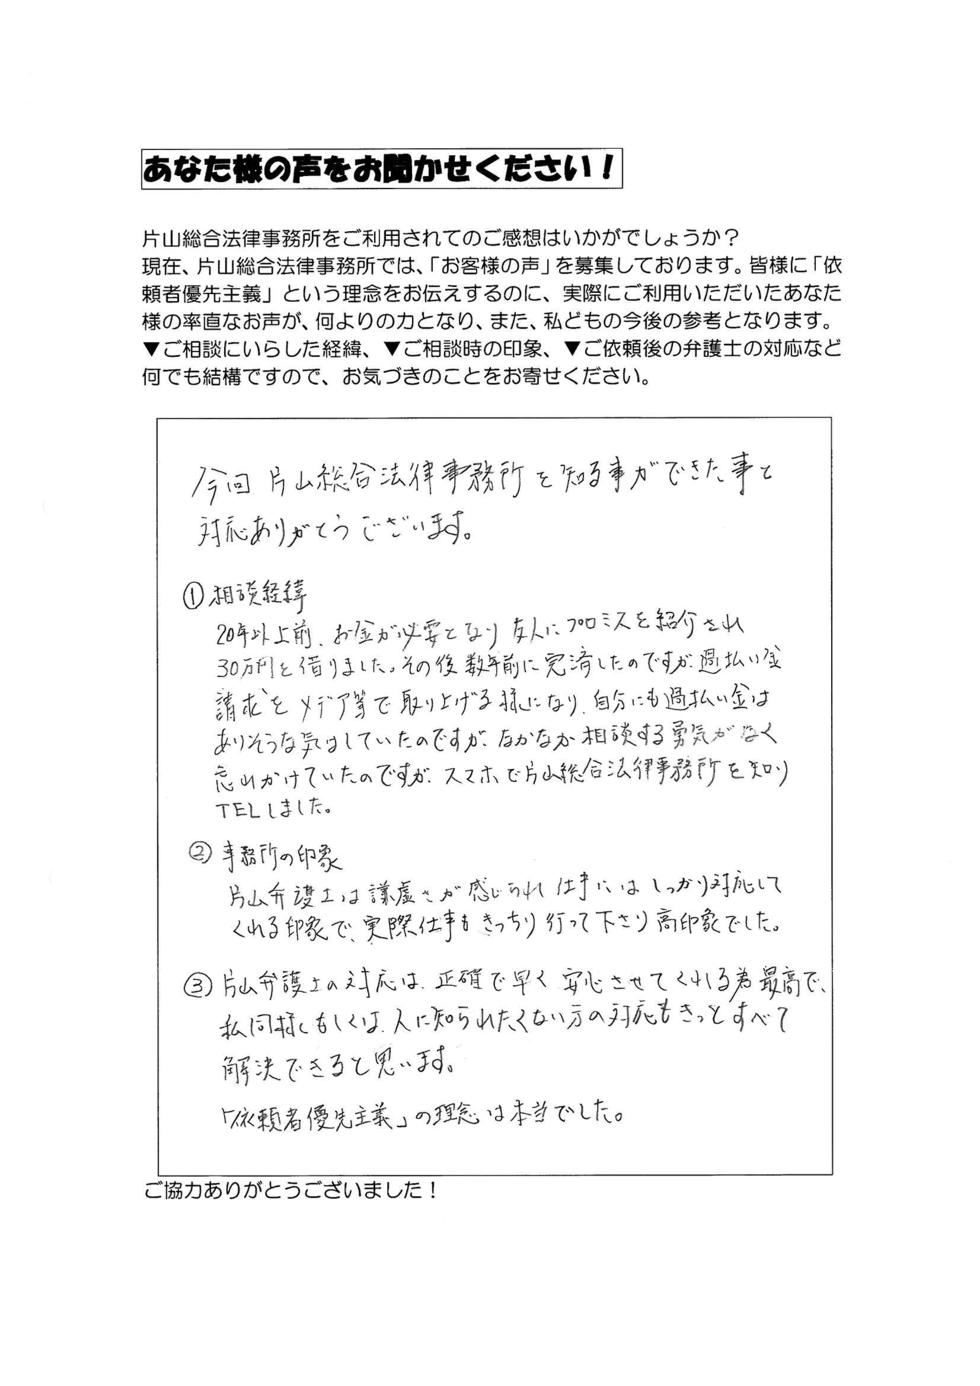 あなた様の声をお聞かせください！
片山総合法律事務所をご利用されてのご感想はいかがでしょうか？
現在、片山総合法律事務所では、「お客様の声」を募集しております。皆様に「依
頼者優先主義」という理念をお伝えするのに、実際にご利用いただいたあなた
様の率直なお声が、何よりの力となり、また、私どもの今後の参考となります。
▼ご相談にいらした経緯、▼ご相談時の印象、▼ご依頼後の弁護士の対応など
何でも結構ですので、お気づきのことをお寄せください。
今回 片山総合法律事務所を知る事ができた事と
対応ありがとうございます。
①相談経緯
20年以上前、お金が必要となり友人にプロミスを紹介され
30万円を借りました。その後数年前に完済したのですが、過払い金
請求をメデア等で取り上げる様になり、自分にも過払い金は
ありそうな気はしていたのですが、なかなか相談する勇気がなく
忘れかけていたのですが、スマホで片山総合法律事務所を知り
TELしました。
② 事務所の印象
片山弁護士は謙虚さが感じられ仕事にはしっかり対応して
くれる印象で、実際仕事もきっちり行って下さり高印象でした。
③ 片山弁護士の対応は、正確で早く安心させてくれる為最高で、
私同様、もしくは、人に知られたくない方の対応もきっとすべて
解決できると思います。
「依頼者優先主義」の理念は本当でした。
ご協力ありがとうございました！